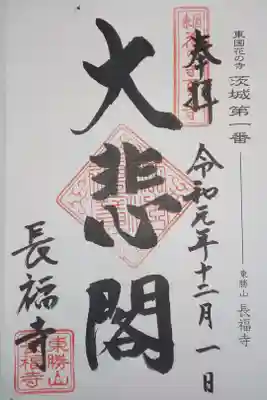 東国花の寺 茨城第一番
東勝山 長福寺
奉拝
令和元年十二月一日
大悲閣
長福寺
東勝山
長福寺